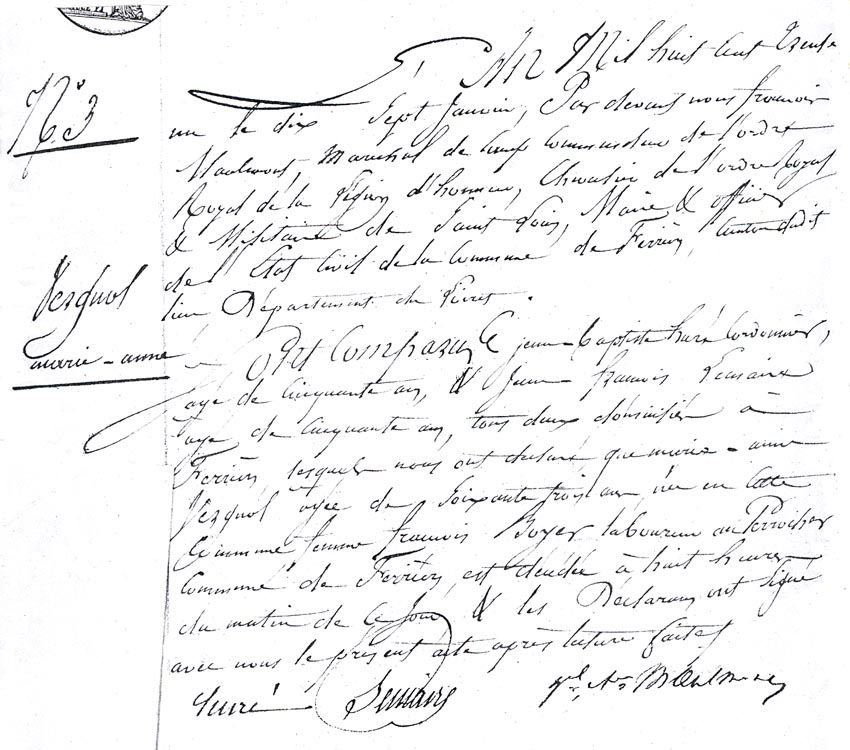 N° 3
L'An Mil huit cent trente
un le dix Sept Janvier, Par devant nous francois
Marechal de Camp Commandeur de l'ordre
Royal de la Légion d'honneur, Chevalier de l'ordre Royal
& Militaire de Saint Louis, Maire & officier
de l'Etat Civil de la Commune de Ferrières, Canton dudit
lieu Département du
Vezgnol
marie-anne
Ont Comparu jean-Baptiste huré Cordonnier,
agé de Cinquante ans, & Jean francois
agé de Cinquante ans, tous deux domiciliés à
Ferrières, lesquels nous ont declaré que marie-anne
Vezgnol agée de Soixante trois ans née en cette
Commune femme francois Boyer laboureur au Perrocher
Commune de Ferrières, est décédée à huit heures
du matin de Ce jour & les Déclarans ont Signé
avec nous le présent acte après lecture faite